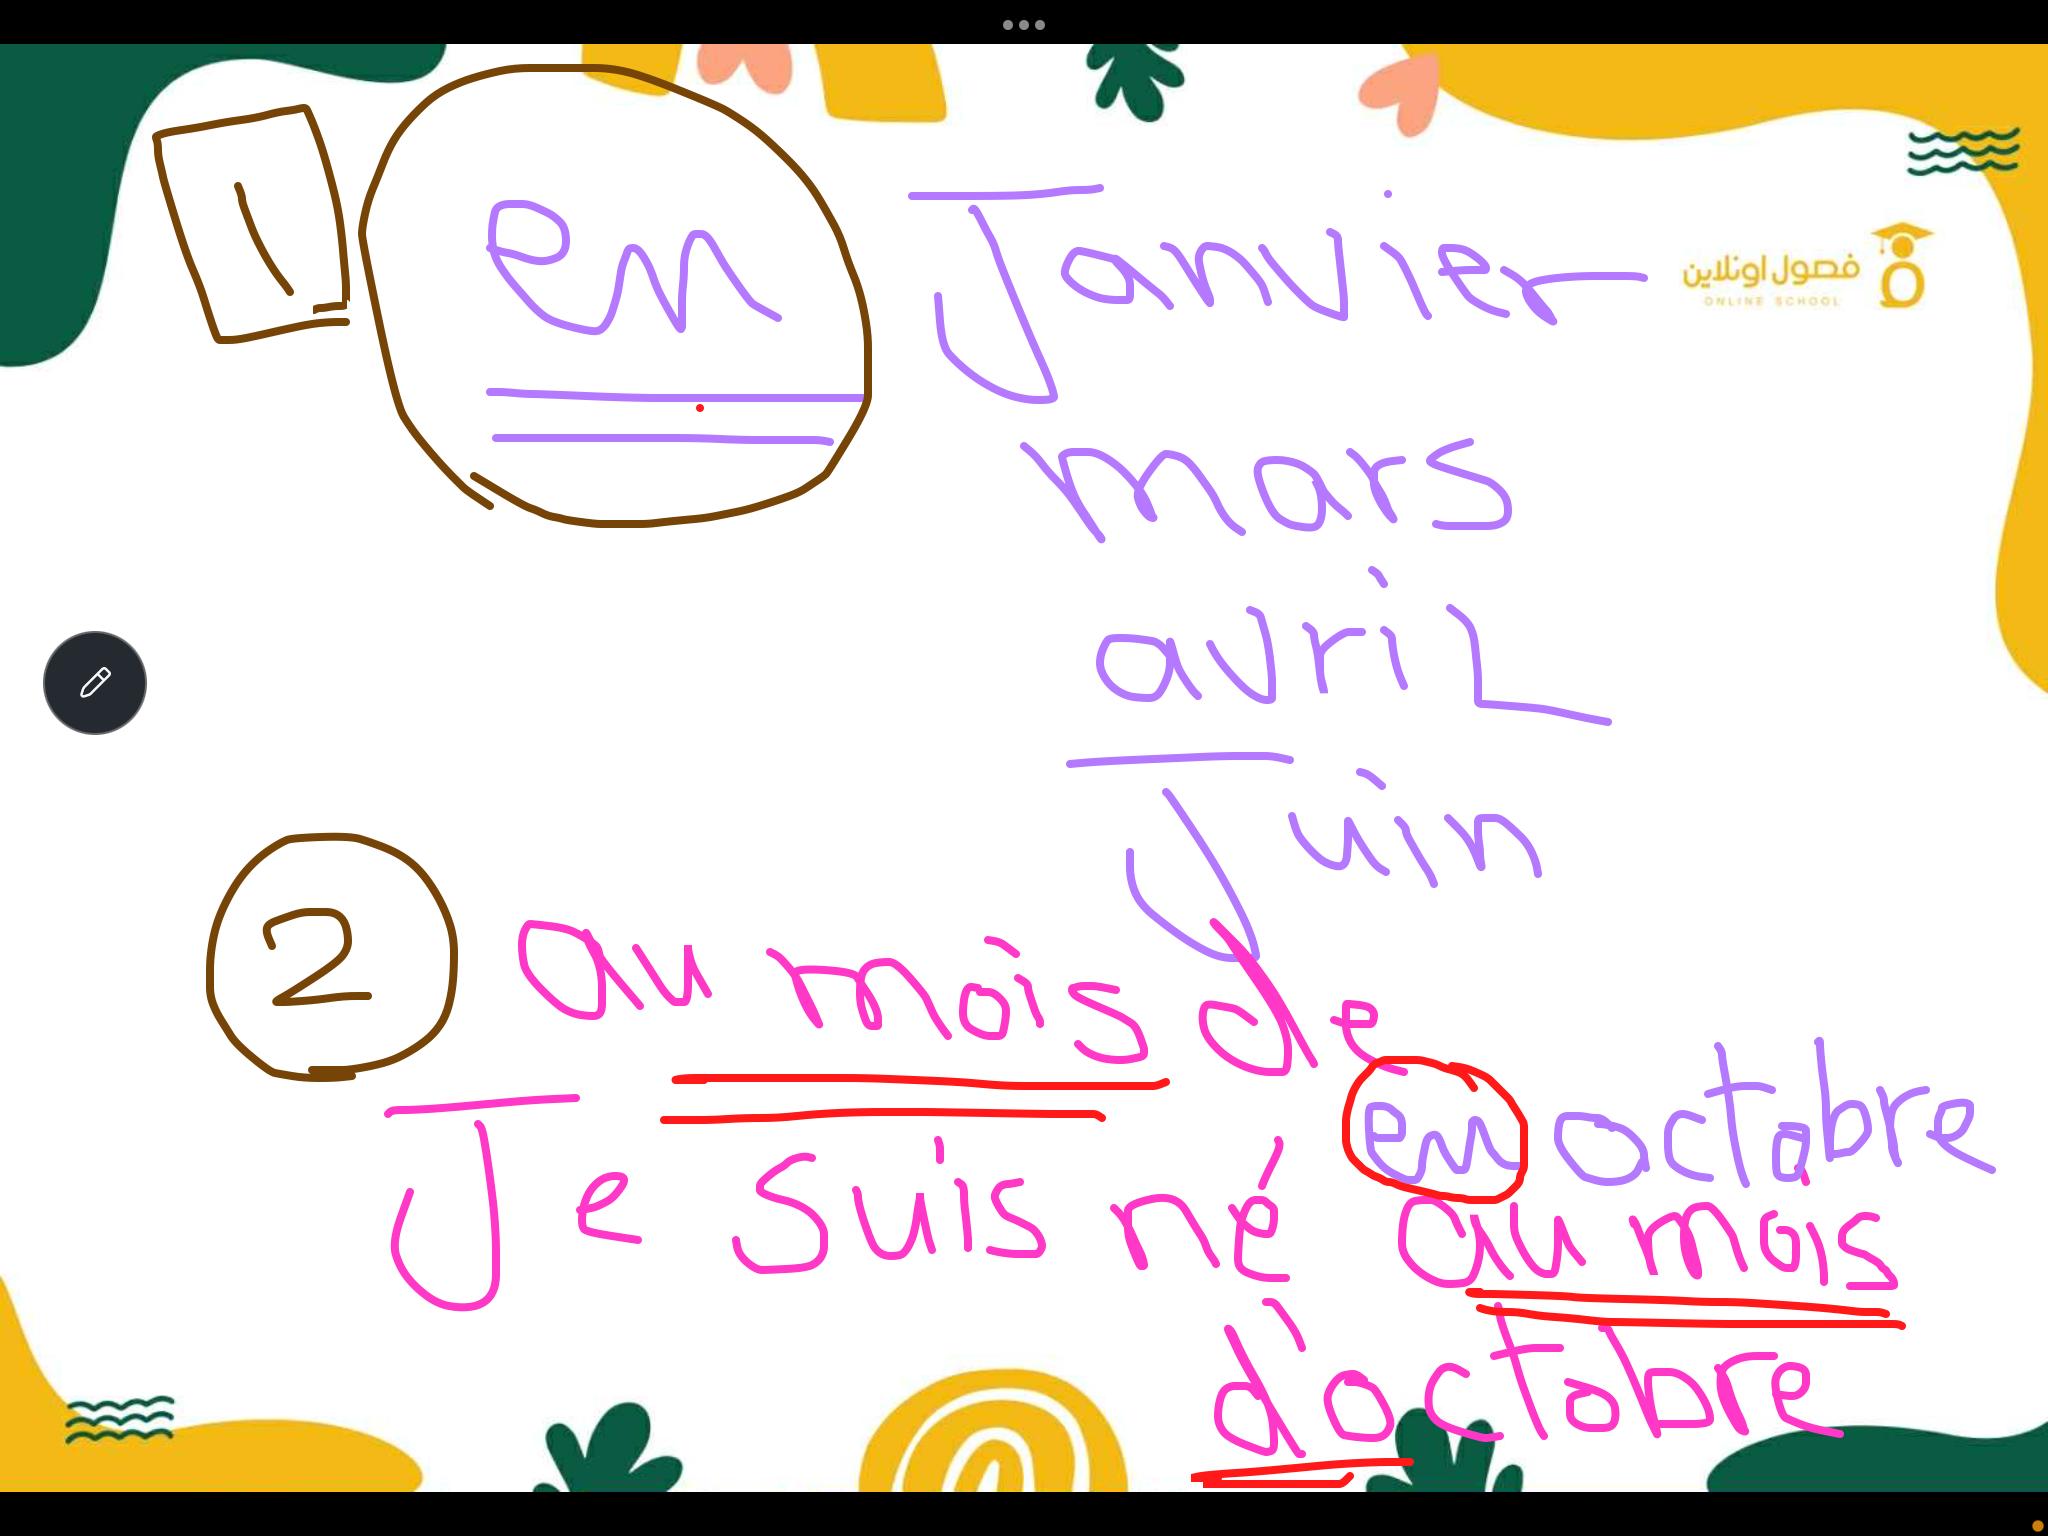 1 en Janvier
فصول اونلاين
ONLINE SCHOOL
mars
avril
Juin
2 au mois de
en octobre
Je suis né au mois
d'octobre